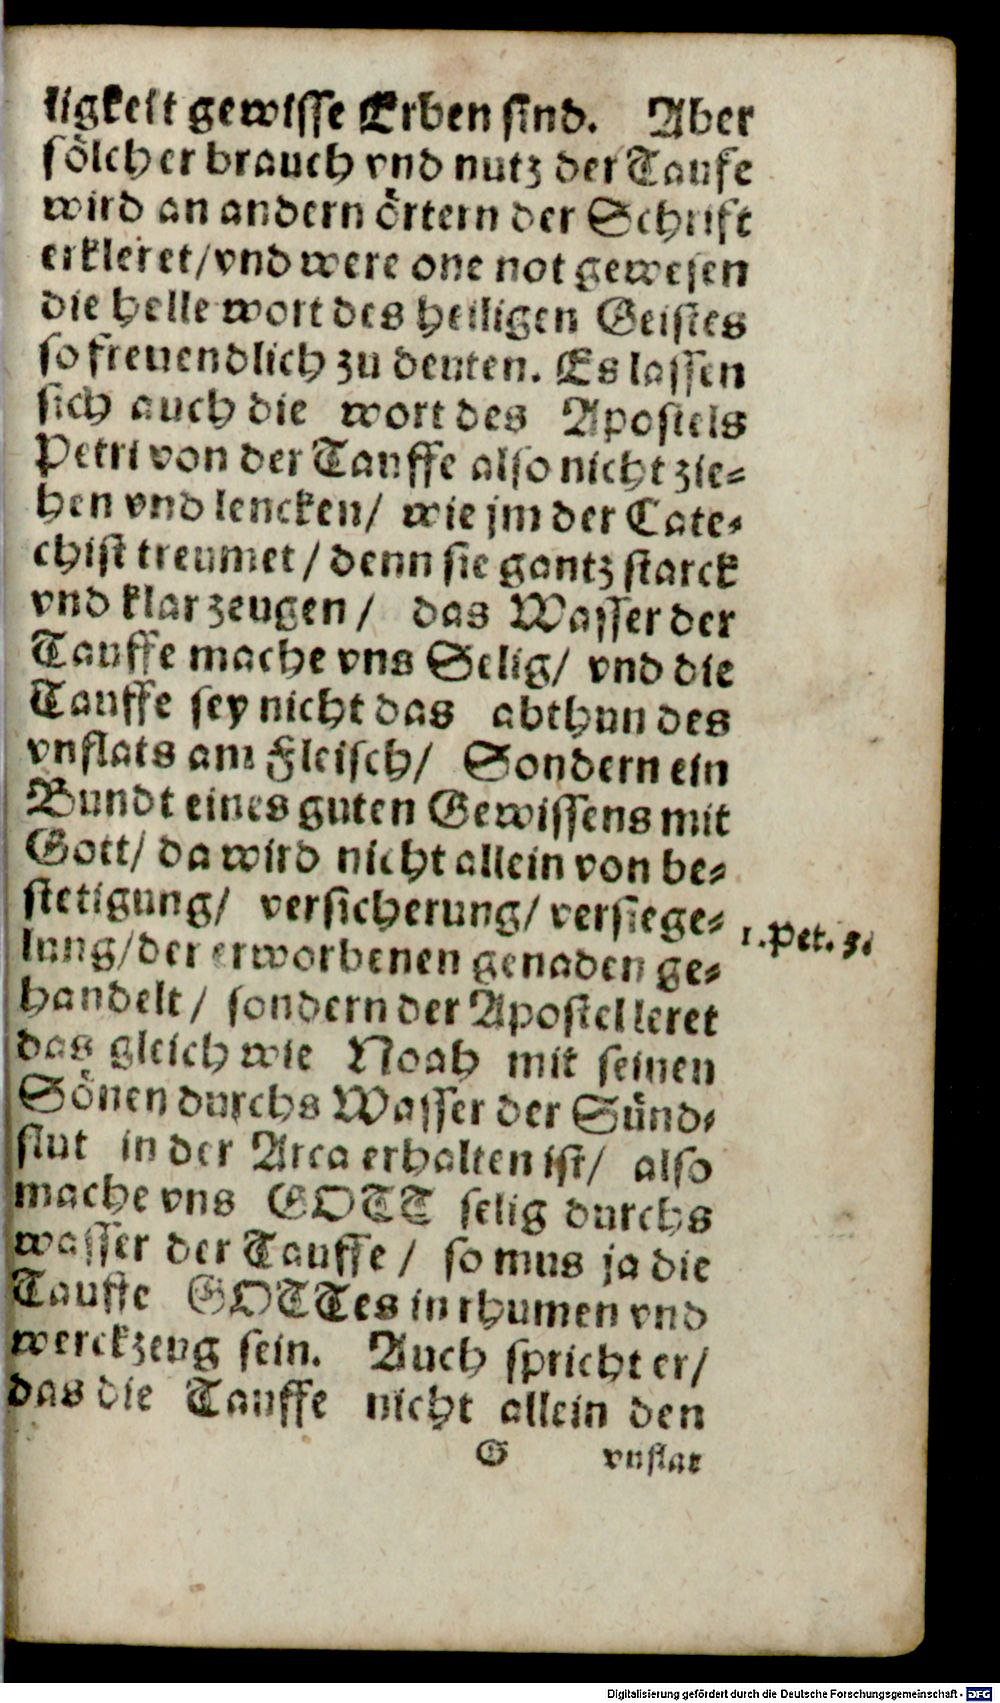 ligkeit gewisse Erben sind. Aber
sölcher brauch vnd nutz der Taufe
wird an andern örtern der Schrift
erkleret/vnd were one not gewesen
die helle wort des heiligen Geistes
so freuendlich zu deuten. Es lassen
sich auch die wort des Apostels
Petri von der Tauffe also nicht zie-
hen vnd lencken/ wie jm der Cate-
chist treumet/ denn sie gantz starck
vnd klar zeugen/ das Wasser der
Tauffe mache vns Selig/ vnd die
Tauffe sey nicht das abthun des
vnflats am Fleisch/ Sondern ein
Bundt eines guten Gewissens mit
Gott/ da wird nicht allein von be-
stetigung/ versicherung/ versiege-
lung/der erworbenen genaden ge-
handelt/ sondern der Apostel leret
das gleich wie Noah mit seinen
Sönen durchs Wasser der Sünd-
flut in der Arca erhalten ist/ also
mache vns GOTT selig durchs
wasser der Tauffe/ so mus ja die
Tauffe GOTTes in rhumen vnd
werckzeug sein. Auch spricht er/
das die Tauffe nicht allein den
G vnflat
1. Pet. 3.
Digitalisierung gefördert durch die Deutsche Forschungsgemeinschaft - DFG